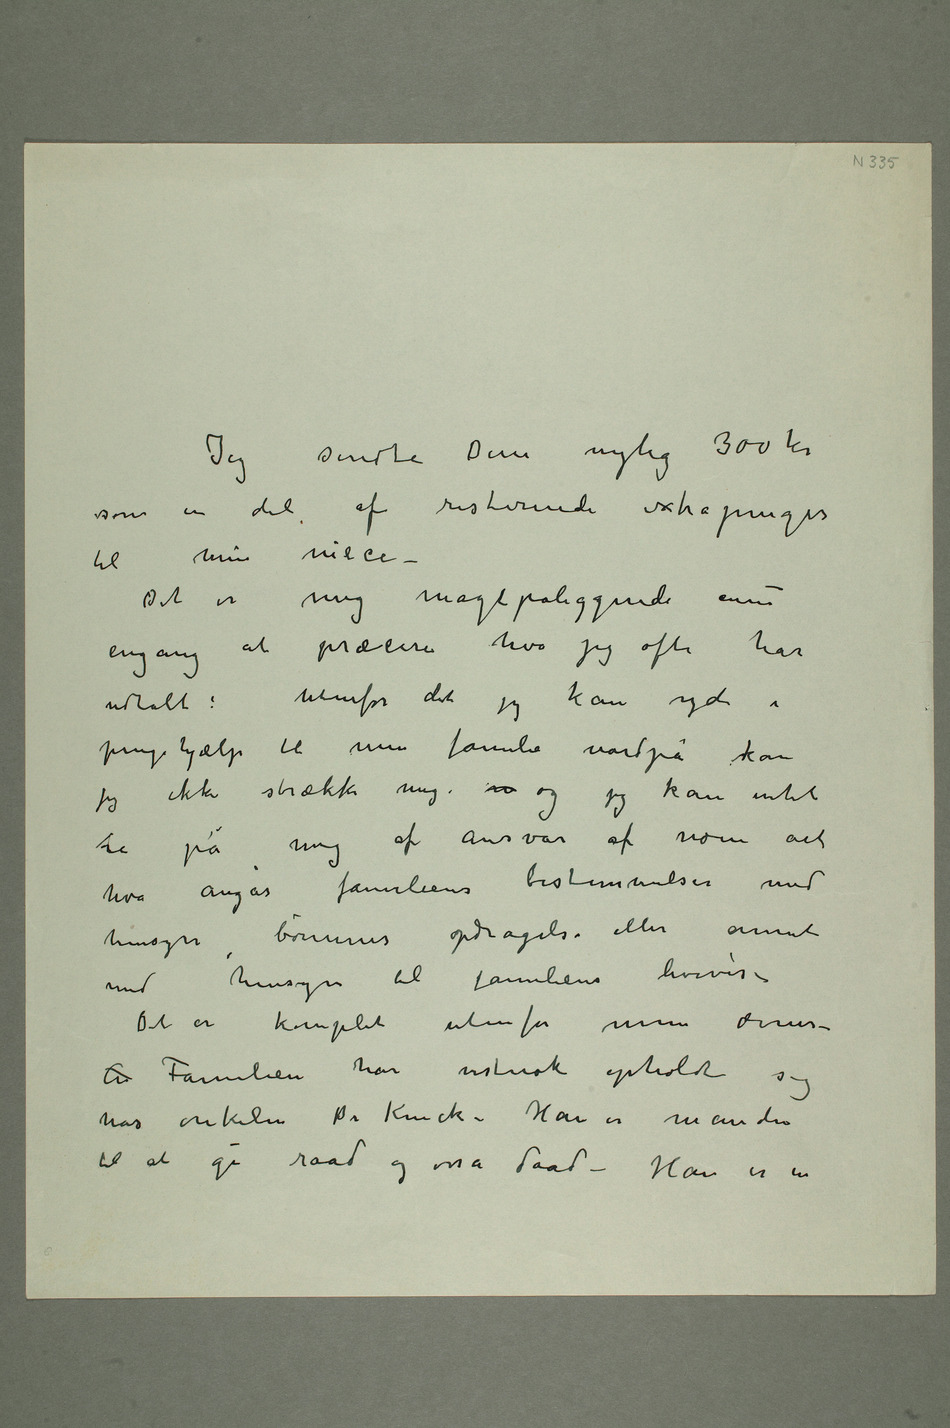 N 335
Jeg sendte Dem nylig 300 kr
som en del af resterende extrapenger
til min niece –
Det er mig magtpåliggende ennu
engang at præcere hva jeg ofte har
udtalt: utenfor det jeg kan yde i
pengehjælp til min familie nordpå kan
jeg ikke strække mig. og jeg kan intet
ta på mig af ansvar af noen art
hva angår familiens bestemmelser med
hensyn børnenes opdragelse eller annet
med hensyn til familiens livsvis –
Det er komplet utenfor mine ævner –
Familien har vistnok opholdt sig
hos onkelen Dr Kinck – Han er manden
til at gi raad og osså daad – Han er en